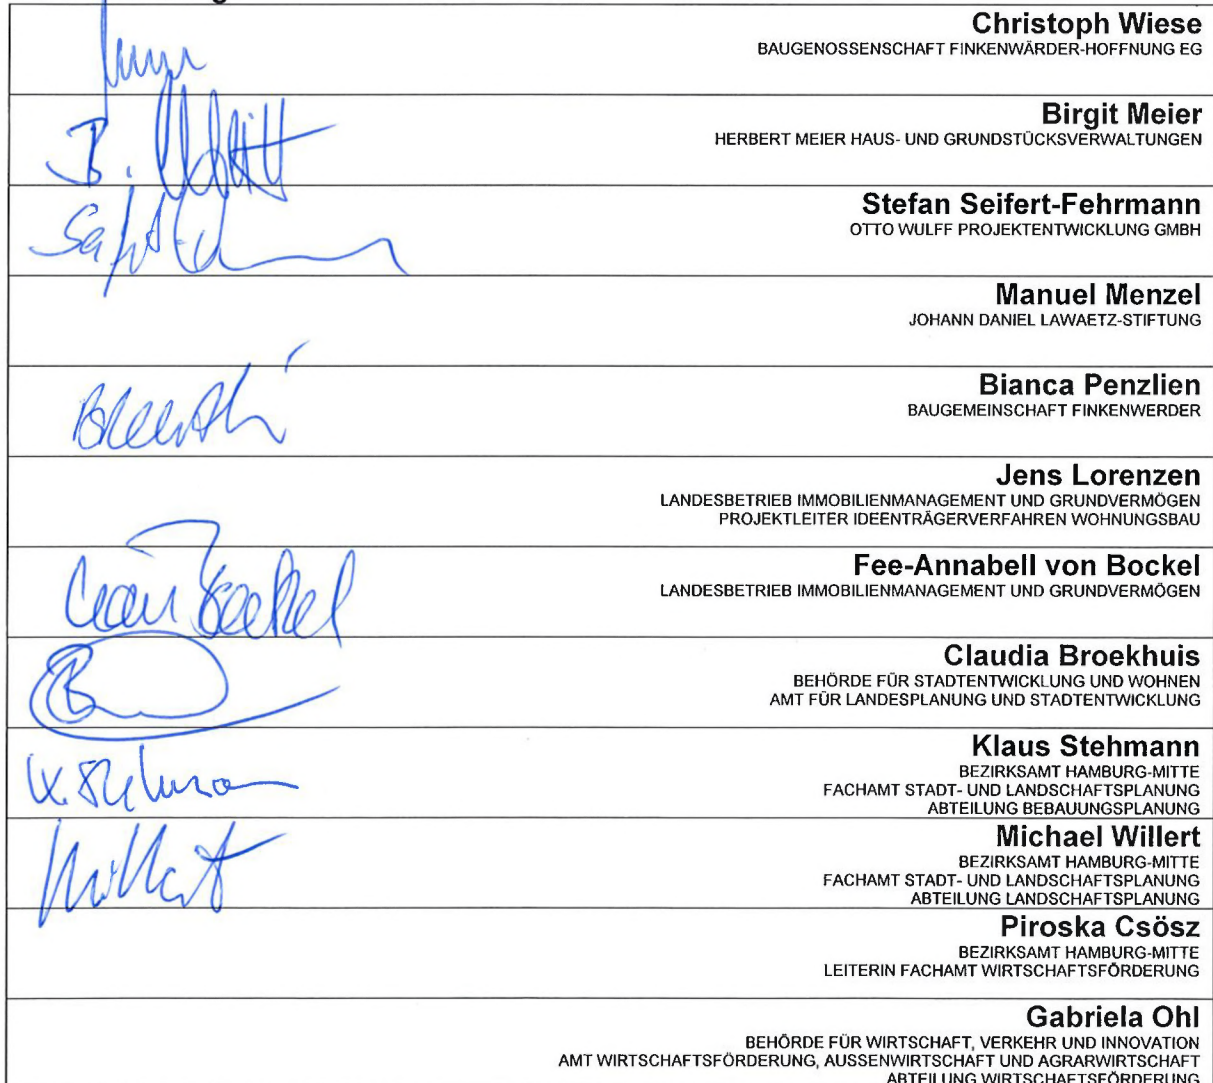 Christoph Wiese
BAUGENOSSENSCHAFT FINKENWÄRDER-HOFFNUNG EG
Birgit Meier
HERBERT MEIER HAUS- UND GRUNDSTÜCKSVERWALTUNGEN
B.
Stefan Seifert-Fehrmann
OTTO WULFF PROJEKTENTWICKLUNG GMBH
Manuel Menzel
JOHANN DANIEL LAWAETZ-STIFTUNG
Bianca Penzlien
BAUGEMEINSCHAFT FINKENWERDER
Jens Lorenzen
LANDESBETRIEB IMMOBILIENMANAGEMENT UND GRUNDVERMÖGEN
PROJEKTLEITER IDEENTRÄGERVERFAHREN WOHNUNGSBAU
Fee-Annabell von Bockel
LANDESBETRIEB IMMOBILIENMANAGEMENT UND GRUNDVERMÖGEN
Claudia Broekhuis
BEHÖRDE FÜR STADTENTWICKLUNG UND WOHNEN
AMT FÜR LANDESPLANUNG UND STADTENTWICKLUNG
Klaus Stehmann
BEZIRKSAMT HAMBURG-MITTE
FACHAMT STADT- UND LANDSCHAFTSPLANUNG
ABTEILUNG BEBAUUNGSPLANUNG
Michael Willert
BEZIRKSAMT HAMBURG-MITTE
FACHAMT STADT- UND LANDSCHAFTSPLANUNG
ABTEILUNG LANDSCHAFTSPLANUNG
Piroska Csösz
BEZIRKSAMT HAMBURG-MITTE
LEITERIN FACHAMT WIRTSCHAFTSFÖRDERUNG
Gabriela Ohl
BEHÖRDE FÜR WIRTSCHAFT, VERKEHR UND INNOVATION
AMT WIRTSCHAFTSFÖRDERUNG, AUSSENWIRTSCHAFT UND AGRARWIRTSCHAFT
ABTEILUNG WIRTSCHAFTSFÖRDERUNG